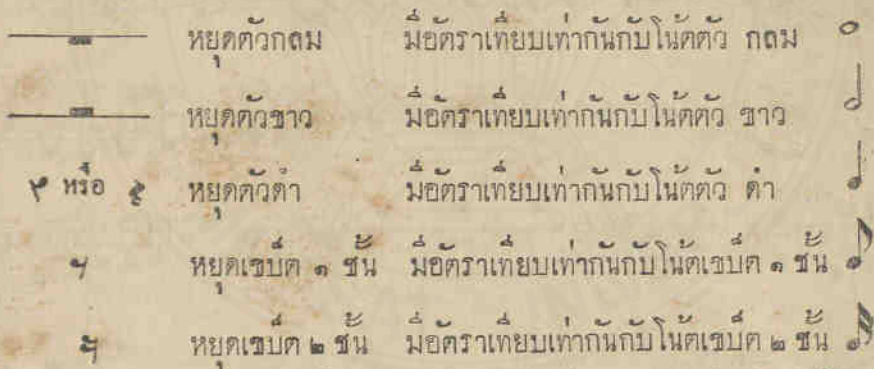 หยุดตัวกลม มีอัตราเทียบเท่ากันกับโน้ตตัว กลม
หยุดตัวขาว มีอัตราเทียบเท่ากันกับโน้ตตัว ขาว
หรือ หยุดตัวดำ มีอัตราเทียบเท่ากันกับโน้ตตัว ดำ
หยุดเขบ็ต ๑ ชั้น มีอัตราเทียบเท่ากันกับโน้ตเขบ็ต ๑ ชั้น
หยุดเขบ็ต ๒ ชั้น มีอัตราเทียบเท่ากันกับโน้ตเขบ็ต ๒ ชั้น